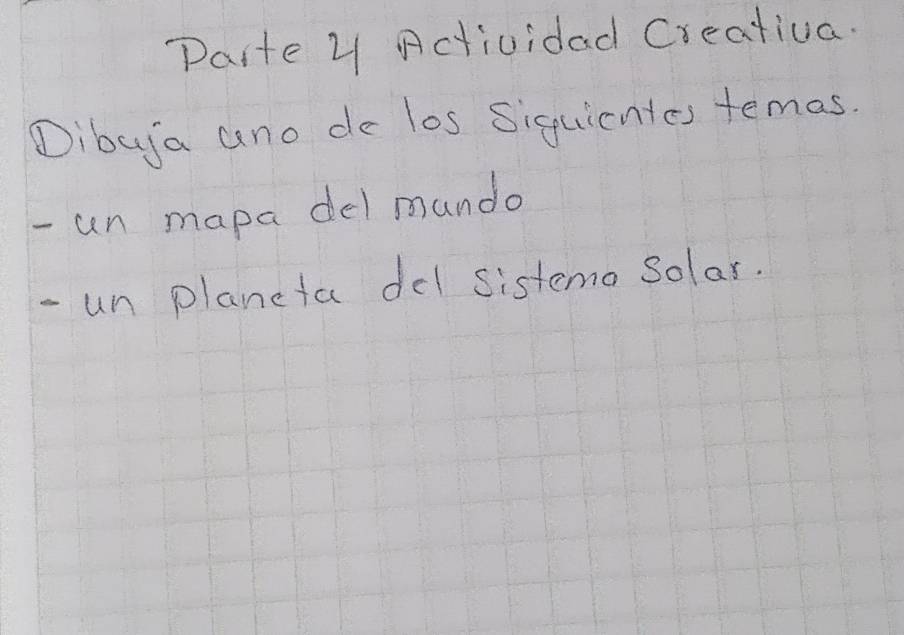 Parte 4 Actividad Creativa.
Dibuja uno de los Siguientes temas.
- un mapa del mundo
- un planeta del sistema Solar.